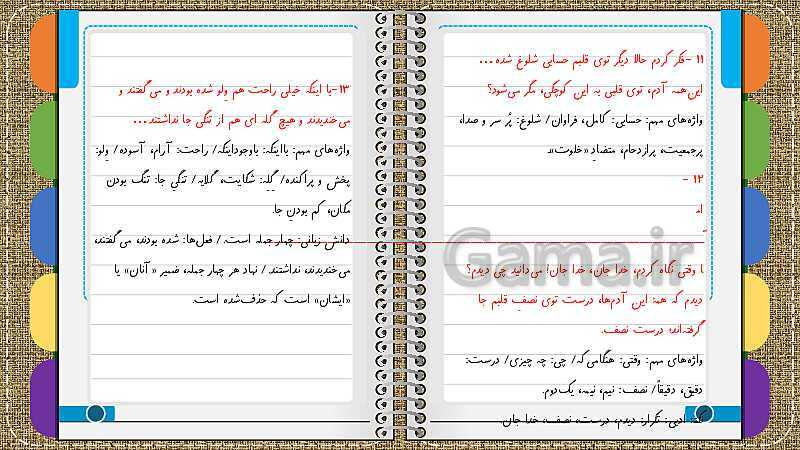 ۱۱ -فکر کردم حالا دیگر توی قلبم حسابی شلوغ شده...
این‌همه آدم، توی قلبی به این کوچکی، مگر می‌شود؟
واژه‌های مهم: حسابی: کامل، فراوان/ شلوغ: پُر سر و صدا،
پرجمعیت، پرازدحام، متضادِ «خلوت».
۱۲ -
ا وقتی نگاه کردم، خدا جان، خدا جان! می‌دانید چی دیدم؟
دیدم که همۀ این آدم‌ها، درست توی نصفِ قلبم جا
گرفته‌اند؛ درست نصف.
واژه‌های مهم: وقتی: هنگامی‌که/ چی: چه چیزی/ درست:
دقیق، دقیقاً/ نصف: نیم، نیمه، یک‌دوم.
ادبی: تکرار: دیدم، درست، نصف، خدا جان.
۱۳-با اینکه خیلی راحت هم ولو شده بودند و می‌گفتند و
می‌خندیدند و هیچ گله ای هم از تنگی جا نداشتند...
واژه‌های مهم: بااینکه: باوجوداینکه/ راحت: آرام، آسوده/ ولو:
پخش و پراکنده/ گِله: شکایت، گلایه/ تنگیِ جا: تنگ بودن
مکان، کم بودنِ جا.
دانش زبانی: چهار جمله است. / فعل‌ها: شده بودند، می‌گفتند،
می‌خندیدند، نداشتند/ نهاد هر چهار جمله، ضمیر «آنان» یا
«ایشان» است که حذف‌شده است.
Gama.ir